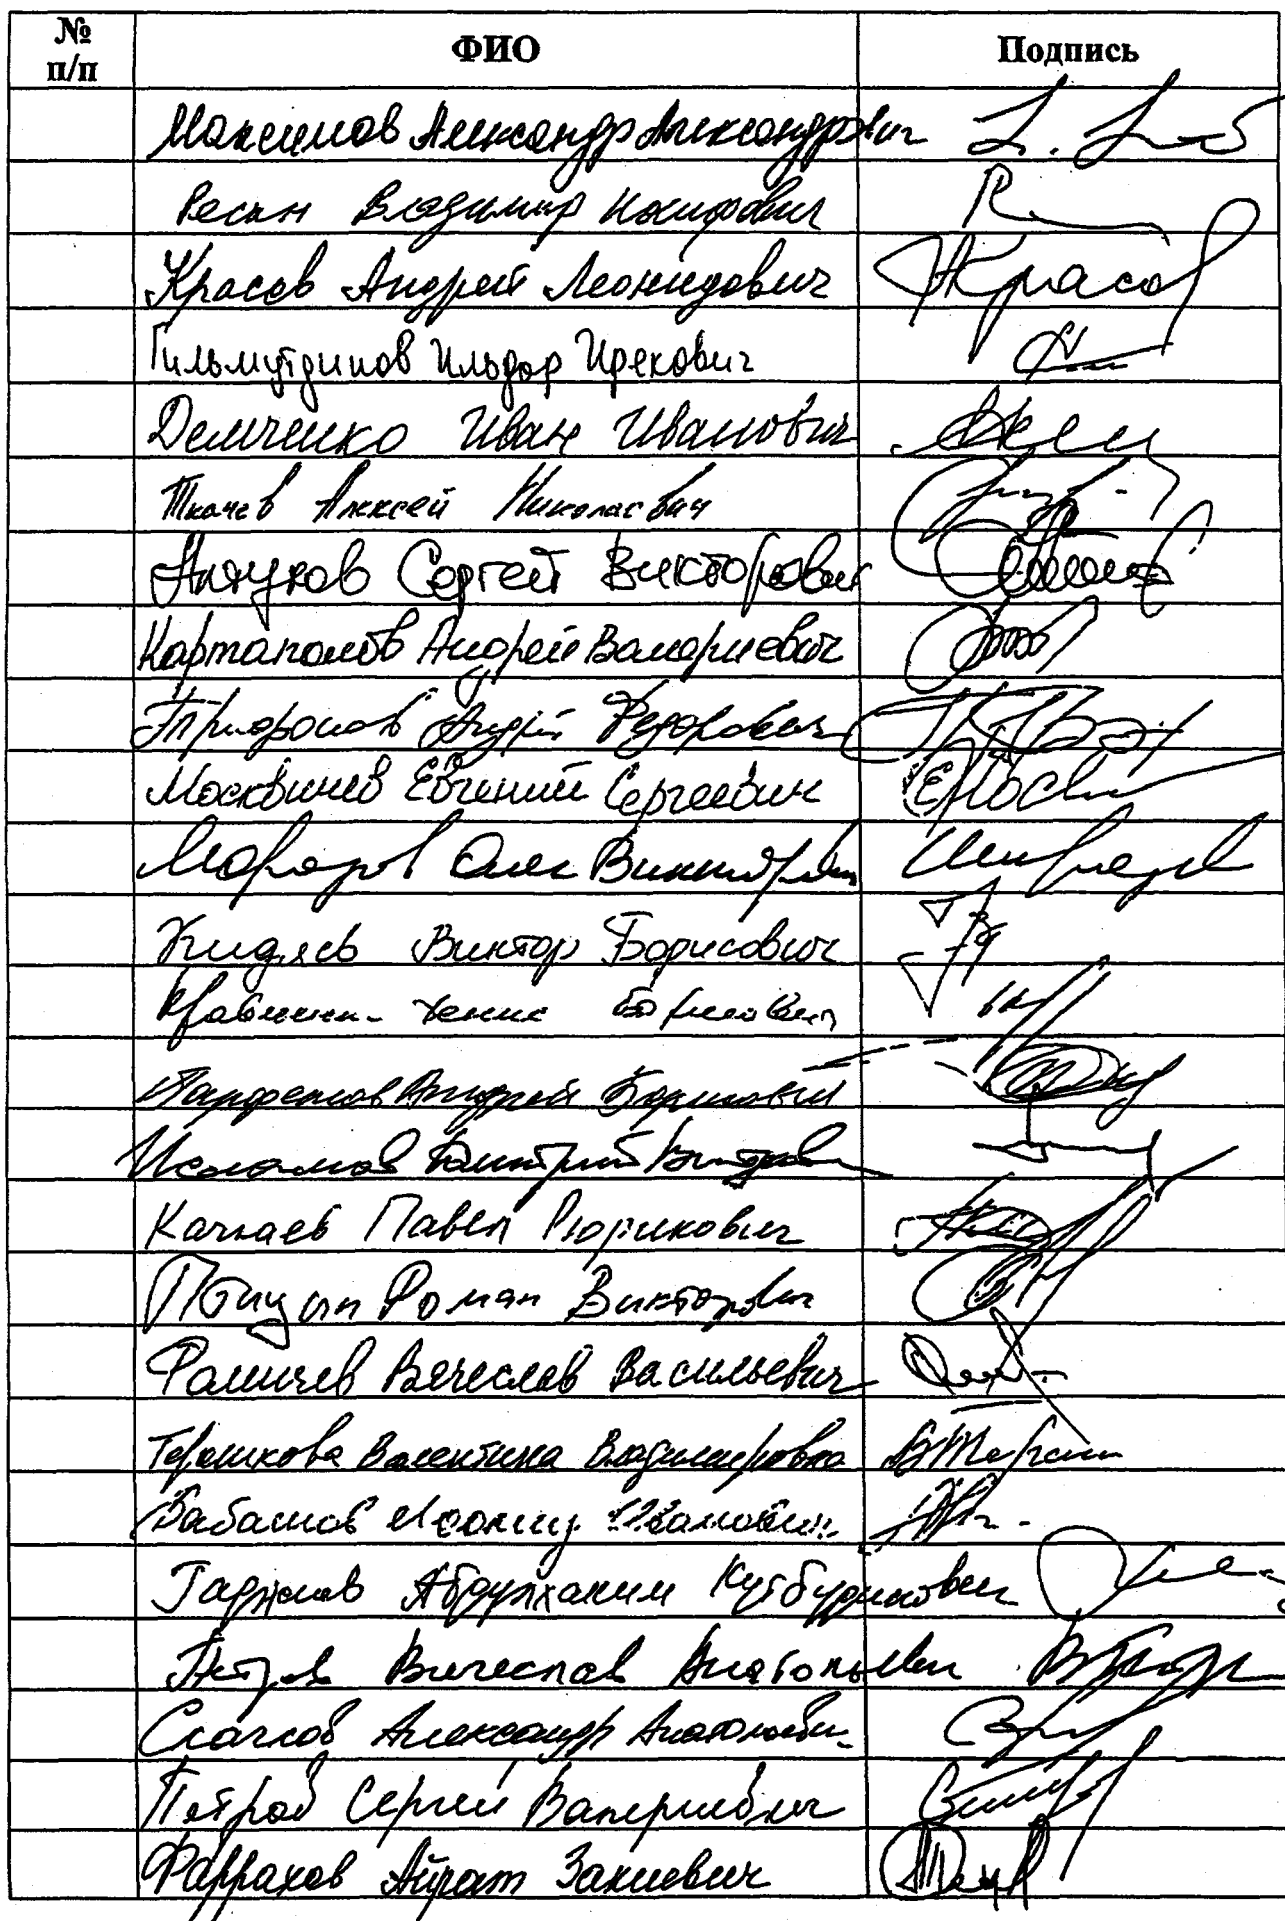 № п/п ФИО Подпись
Максимов Александр Александрович
Ресин Владимир Иосифович
Красов Андрей Леонидович Красов
Гильмутдинов Ильдар Ирекович
Демченко Иван Иванович
Ткачев Алексей Николаевич
Алтухов Сергей Викторович
Картаполов Андрей Валериевич
Трифонов Андрей Федорович
Москвичев Евгений Сергеевич
Морозов Олег Викторович
Кидяев Виктор Борисович
Кравченко Денис Борисович
Парфенов Андрей Борисович
Исламов Дмитрий Викторович
Качкаев Павел Рюрикович
Птицын Роман Викторович
Фомичев Вячеслав Васильевич
Терешкова Валентина Владимировна
Бабашов Леонид Иванович
Гаджиев Абдулхаким Кутбудинович
Петров Вячеслав Анатольевич
Скачков Александр Анатольевич
Петров Сергей Валериевич
Фаррахов Айрат Закиевич